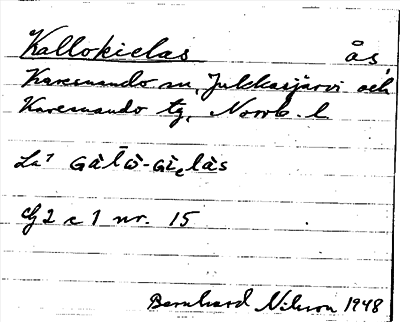 Kallokielas ås,
Karesuando sn, Jukkasjärvi och
Karesuando tg, Norrb. l
La¹ Gàlṑ-Gi̯elàs
cf 2 c 1 nr. 15
Bernhard Nilsson 1948